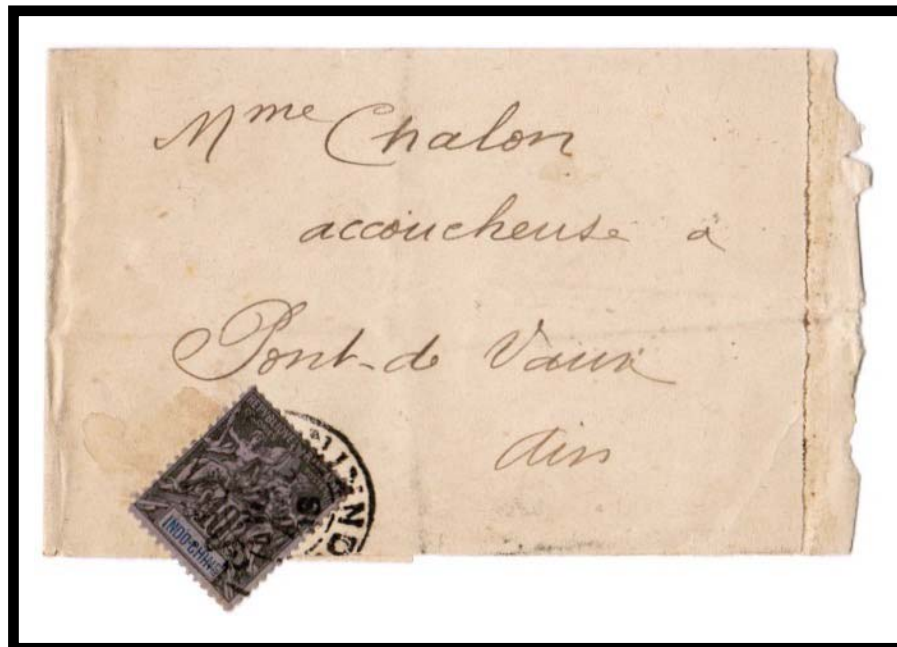 Mme Chalon
accoucheuse à
Pont-de Vaux
Ain
10
INDO-CHINE